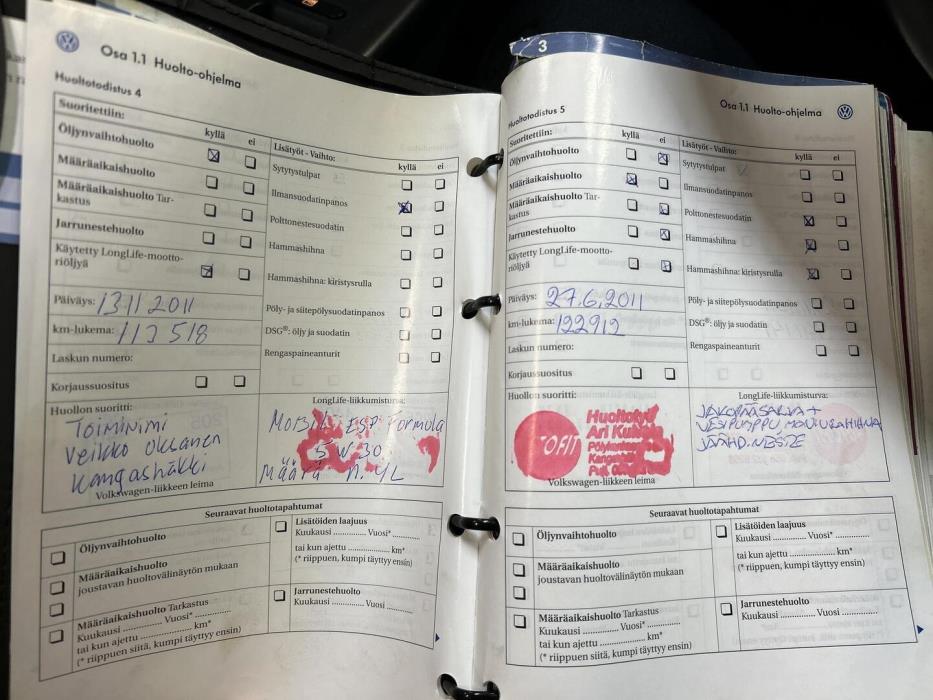 Osa 1.1 Huolto-ohjelma
Huoltotodistus 4
Suoritettiin:
kyllä ei
Öljynvaihtohuolto
Määräaikaishuolto
Määräaikaishuolto Tar-
kastus
Jarrunestehuolto
Käytetty LongLife-mootto-
riöljyä
Päiväys: 13.1.2011
km-lukema: 113518
Laskun numero:
Korjaussuositus
Lisätyöt - Vaihto:
kyllä ei
Sytytystulpat
Ilmansuodatinpanos
Polttonestesuodatin
Hammashihna
Hammashihna: kiristysrulla
Pöly- ja siitepölysuodatinpanos
DSG®: öljy ja suodatin
Rengaspaineanturit
Huollon suoritti:
Toiminimi
Veikko Oksanen
Kangashäkki
Volkswagen-liikkeen leima
LongLife-liikkumisturva:
ESP Formula
5W30
Määrä n. 4L
Seuraavat huoltotapahtumat
Öljynvaihtohuolto
Määräaikaishuolto
joustavan huoltovälinäytön mukaan
Määräaikaishuolto Tarkastus
Kuukausi .............. Vuosi* ..............
tai kun ajettu .................... km*
(* riippuen siitä, kumpi täyttyy ensin)
Lisätöiden laajuus
Kuukausi ............. Vuosi* .............
tai kun ajettu .................... km*
(* riippuen, kumpi täyttyy ensin)
Jarrunestehuolto
Kuukausi ............. Vuosi .............
3
Osa 1.1 Huolto-ohjelma
Huoltotodistus 5
Suoritettiin:
kyllä ei
Öljynvaihtohuolto
Määräaikaishuolto
Määräaikaishuolto Tar-
kastus
Jarrunestehuolto
Käytetty LongLife-mootto-
riöljyä
Päiväys: 27.6.2011
km-lukema: 122912
Laskun numero:
Korjaussuositus
Lisätyöt - Vaihto:
kyllä ei
Sytytystulpat
Ilmansuodatinpanos
Polttonestesuodatin
Hammashihna
Hammashihna: kiristysrulla
Pöly- ja siitepölysuodatinpanos
DSG®: öljy ja suodatin
Rengaspaineanturit
Huollon suoritti:
Ari
Volkswagen-liikkeen leima
LongLife-liikkumisturva:
JAKOPÄÄSARJA +
VESIPUMPPU, MONIURAHIHNA
JÄÄHD. NESTE
Seuraavat huoltotapahtumat
Öljynvaihtohuolto
Määräaikaishuolto
joustavan huoltovälinäytön mukaan
Määräaikaishuolto Tarkastus
Kuukausi .............. Vuosi* ..............
tai kun ajettu .................... km*
(* riippuen siitä, kumpi täyttyy ensin)
Lisätöiden laajuus
Kuukausi ............. Vuosi* .............
tai kun ajettu .................... km*
(* riippuen, kumpi täyttyy ensin)
Jarrunestehuolto
Kuukausi ............. Vuosi .............